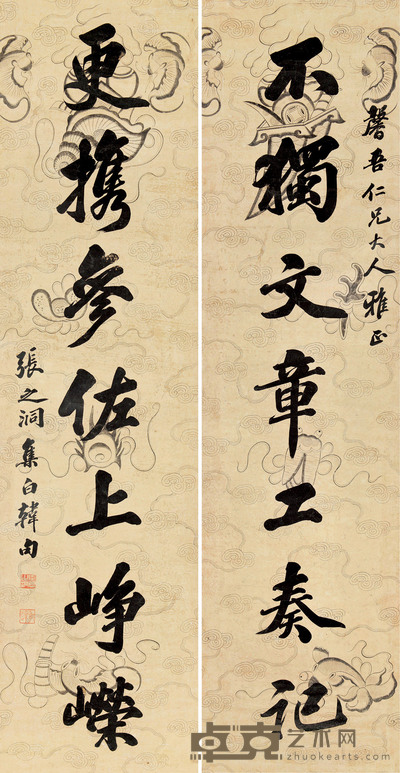 馨吾仁兄大人雅正
不獨文章工奏記
更携參佐上崢嶸
張之洞集白韓句
卓克艺术网
zhuokearts.com